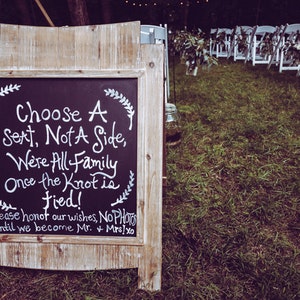 Choose A
Seat, Not A Side,
We're All Family
Once the Knot is
Tied!
Please honor our wishes, No PHOTOS
until we become Mr. + Mrs! xo